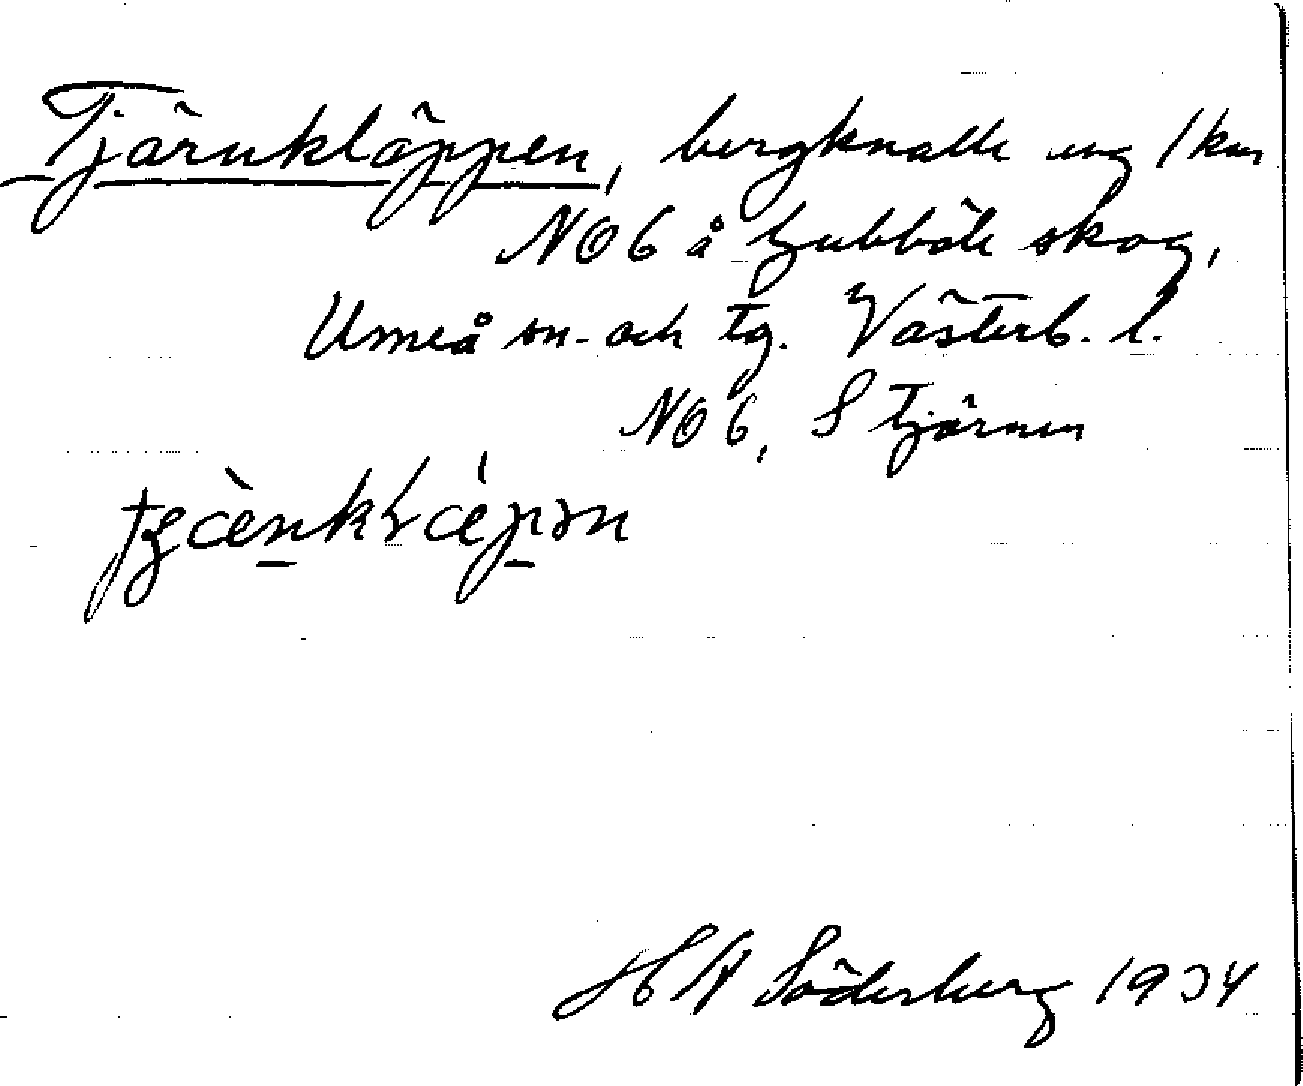 Tjärnkläppen, bergknalle ung 1 km
NO b å Gubböle skog,
Umeå sn. och tg. Västerb. l.
NO b, S tjärnen
H A Söderberg 1934